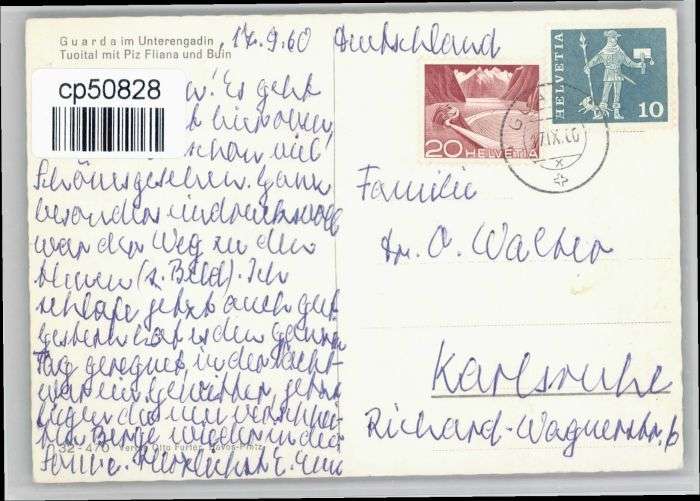 Guarda im Unterengadin
Tuoital mit Piz Fliana und Buin
17.9.60 Deutschland
cp50828
Es geht
hier oben
schon viel
Schönes gesehen. Ganz
besonders eindrucksvoll
war der Weg zu den
(s. Bild). Ich
schlafe jetzt auch gut.
Gestern hat es den ganzen
Tag geregnet, in der Nacht
war ein Gewitter, jetzt
liegen die neu verschnei-
ten Berge wieder in der
Sonne. Herzlichst E.
32-470 Verlag Otto Furter, Davos-Platz
20 HELVETIA
HELVETIA 10
17.IX.60
Familie
Dr. O. Walter
Karlsruhe
Richard-Wagnerstr. 6